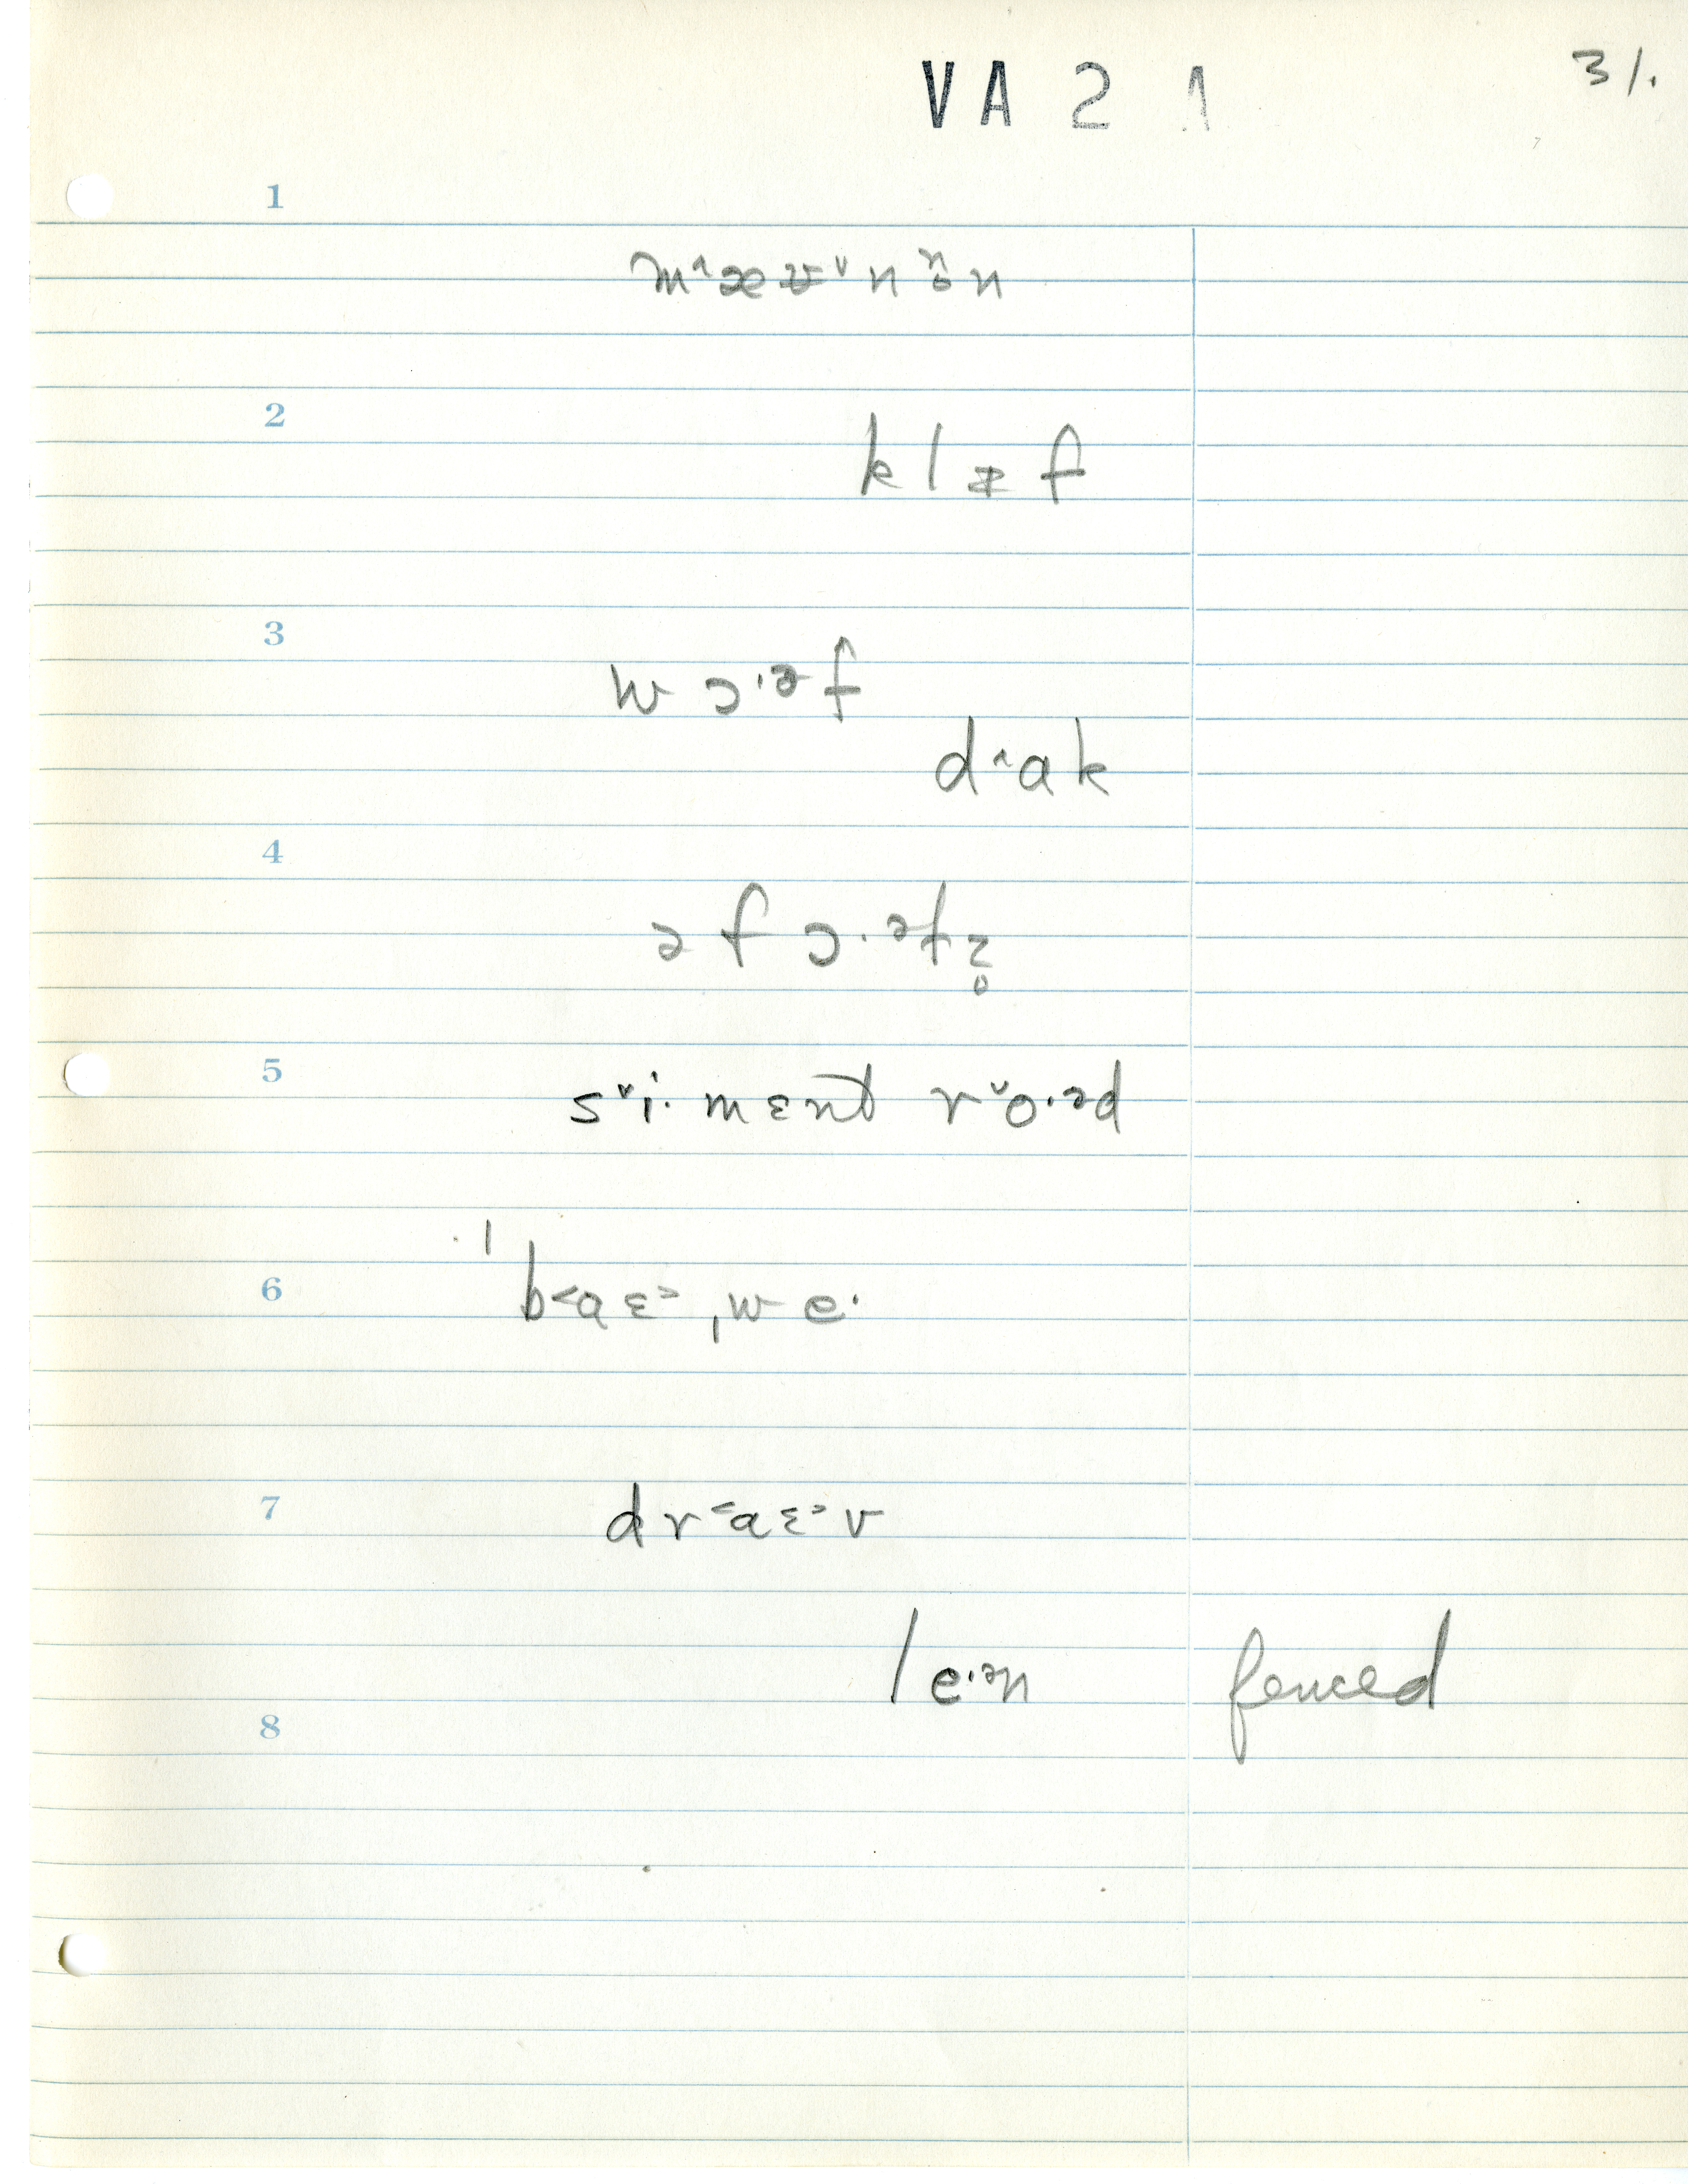 VA 2 1
31.
1
m˄æʉ˅nt̬n
2
klɪ̵f
3
wɔ·ᵊf
d˄ɑk
4
əfɔ·ᵊfz̥
5
s˅i·mɛnt r˅o·ᵊd
6
ˈb˂aɛ˃ˌwe·
7
dr˂aɛ˃v
le·ᵊn fenced
8